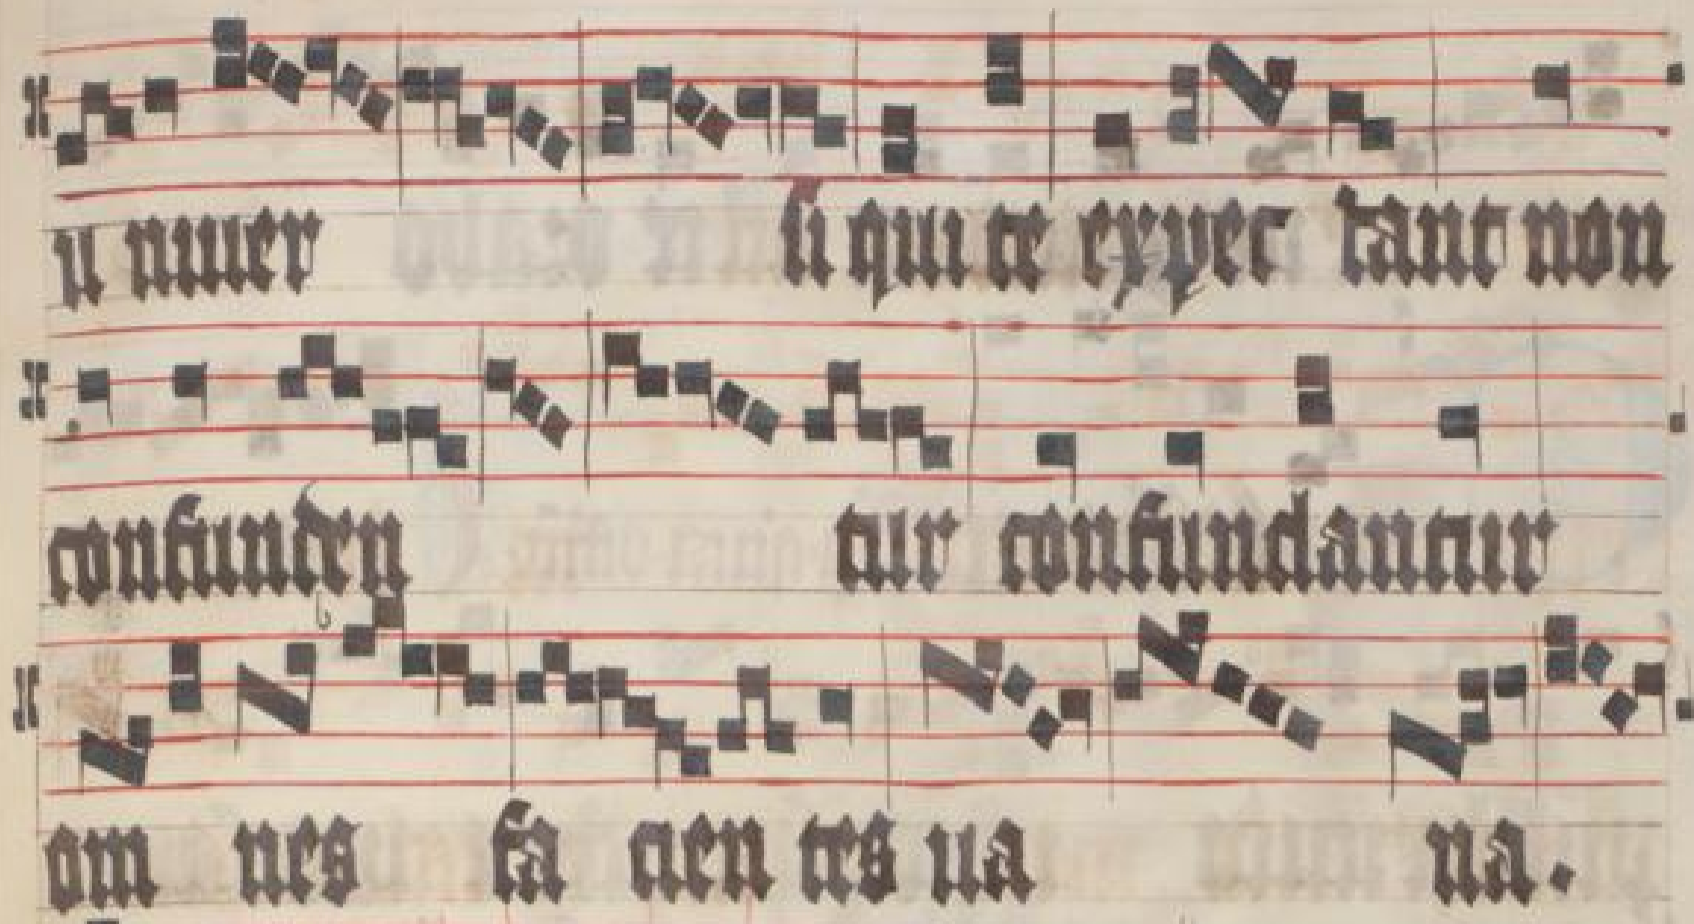 u niuer si qui te expec tant non
confunden tur confundantur
om nes fa cien tes ua na.